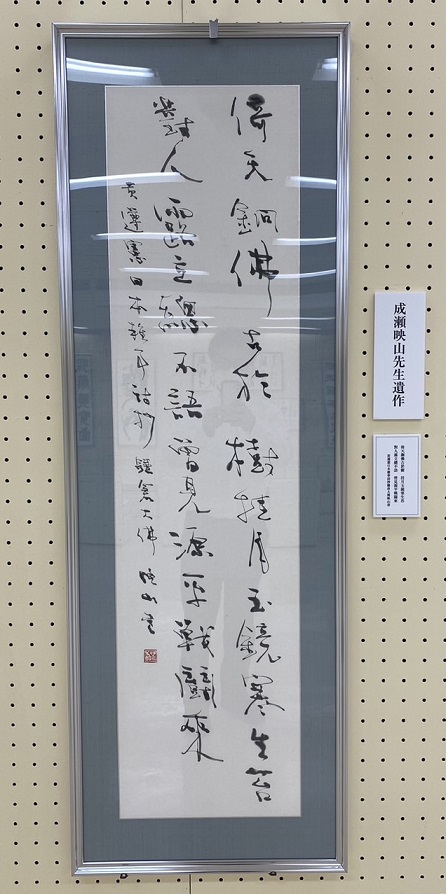 倚天銅佛古於樹挂月玉鏡寒生苔
對人露立總不語曾見源平戰鬪來
黃遵憲日本雜事詩 鎌倉大佛 映山書
成瀬映山先生遺作